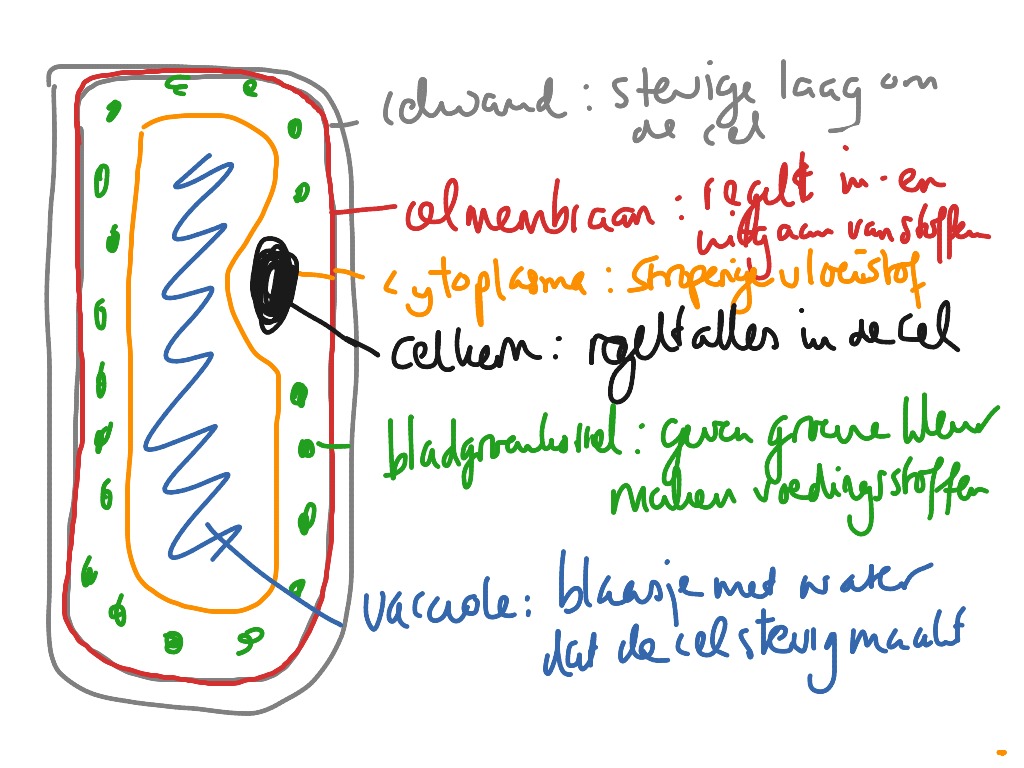 celwand : stevige laag om
de cel
celmembraan : regelt in- en
uitgaan van stoffen
cytoplasma : stroperige vloeistof
celkern : regelt alles in de cel
bladgroenkorrel : geven groene kleur
maken voedingsstoffen
vacuole : blaasje met water
dat de cel stevig maakt